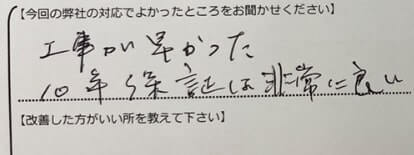 【今回の弊社の対応でよかったところをお聞かせください】
工事が早かった
10年保証は非常に良い
【改善した方がいい所を教えて下さい】